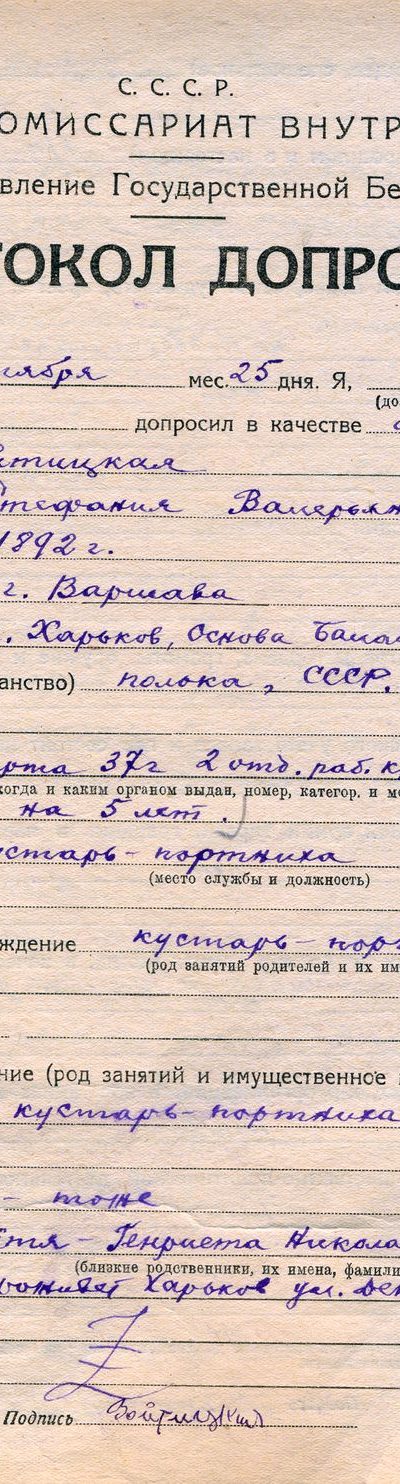 С. С. С. Р.
ОМИССАРИАТ ВНУТР
вление Государственной Бе
ТОКОЛ ДОПРО
ября мес. 25 дня. Я,
(до
допросил в качестве
тицкая
Стефания Валерьян
1892 г.
г. Варшава
. Харьков, Основа
анство) полька, СССР.
рта 37г 2 отд. раб. к
когда и каким органом выдан, номер, категор. и м
на 5 лет.
устарь - портниха
(место службы и должность)
ждение кустарь - пор
(род занятий родителей и их им
ние (род занятий и имущественное
кустарь - портниха
- тоже
стя - Генриета Никола
(близкие родственники, их имена, фамили
Харьков ул.
Подпись